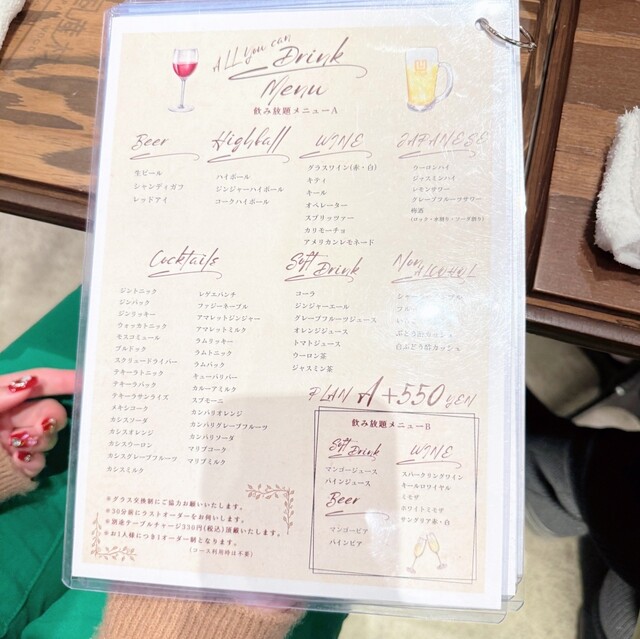 All you can
Drink
Menu
飲み放題メニューA
Beer
生ビール
シャンディガフ
レッドアイ
Highball
ハイボール
ジンジャーハイボール
コークハイボール
WINE
グラスワイン(赤・白)
キティ
キール
オペレーター
スプリッツァー
カリモーチョ
アメリカンレモネード
JAPANESE
ウーロンハイ
ジャスミンハイ
レモンサワー
グレープフルーツサワー
梅酒
(ロック・水割り・ソーダ割り)
Cocktails
ジントニック
ジンバック
ジンリッキー
ウォッカトニック
モスコミュール
ブルドック
スクリュードライバー
テキーラトニック
テキーラバック
テキーラサンライズ
メキシコーク
カシスソーダ
カシスオレンジ
カシスウーロン
カシスグレープフルーツ
カシスミルク
レゲエパンチ
ファジーネーブル
アマレットジンジャー
アマレットミルク
ラムリッキー
ラムトニック
ラムバック
キューバリバー
カルーアミルク
スプモーニ
カンパリオレンジ
カンパリグレープフルーツ
カンパリソーダ
マリブコーク
マリブミルク
Soft Drink
コーラ
ジンジャーエール
グレープフルーツジュース
オレンジジュース
トマトジュース
ウーロン茶
ジャスミン茶
Non ALCOHOL
PLAN A +550 yen
飲み放題メニューB
Soft Drink
マンゴージュース
パインジュース
Beer
マンゴービア
パインビア
WINE
スパークリングワイン
キールロワイヤル
ミモザ
ホワイトミモザ
サングリア赤・白
※グラス交換制にご協力お願いいたします。
※30分前にラストオーダーをお伺いします。
※別途テーブルチャージ330円(税込)頂戴いたします。
※お1人様につき1オーダー制となります。
(コース利用時は不要)